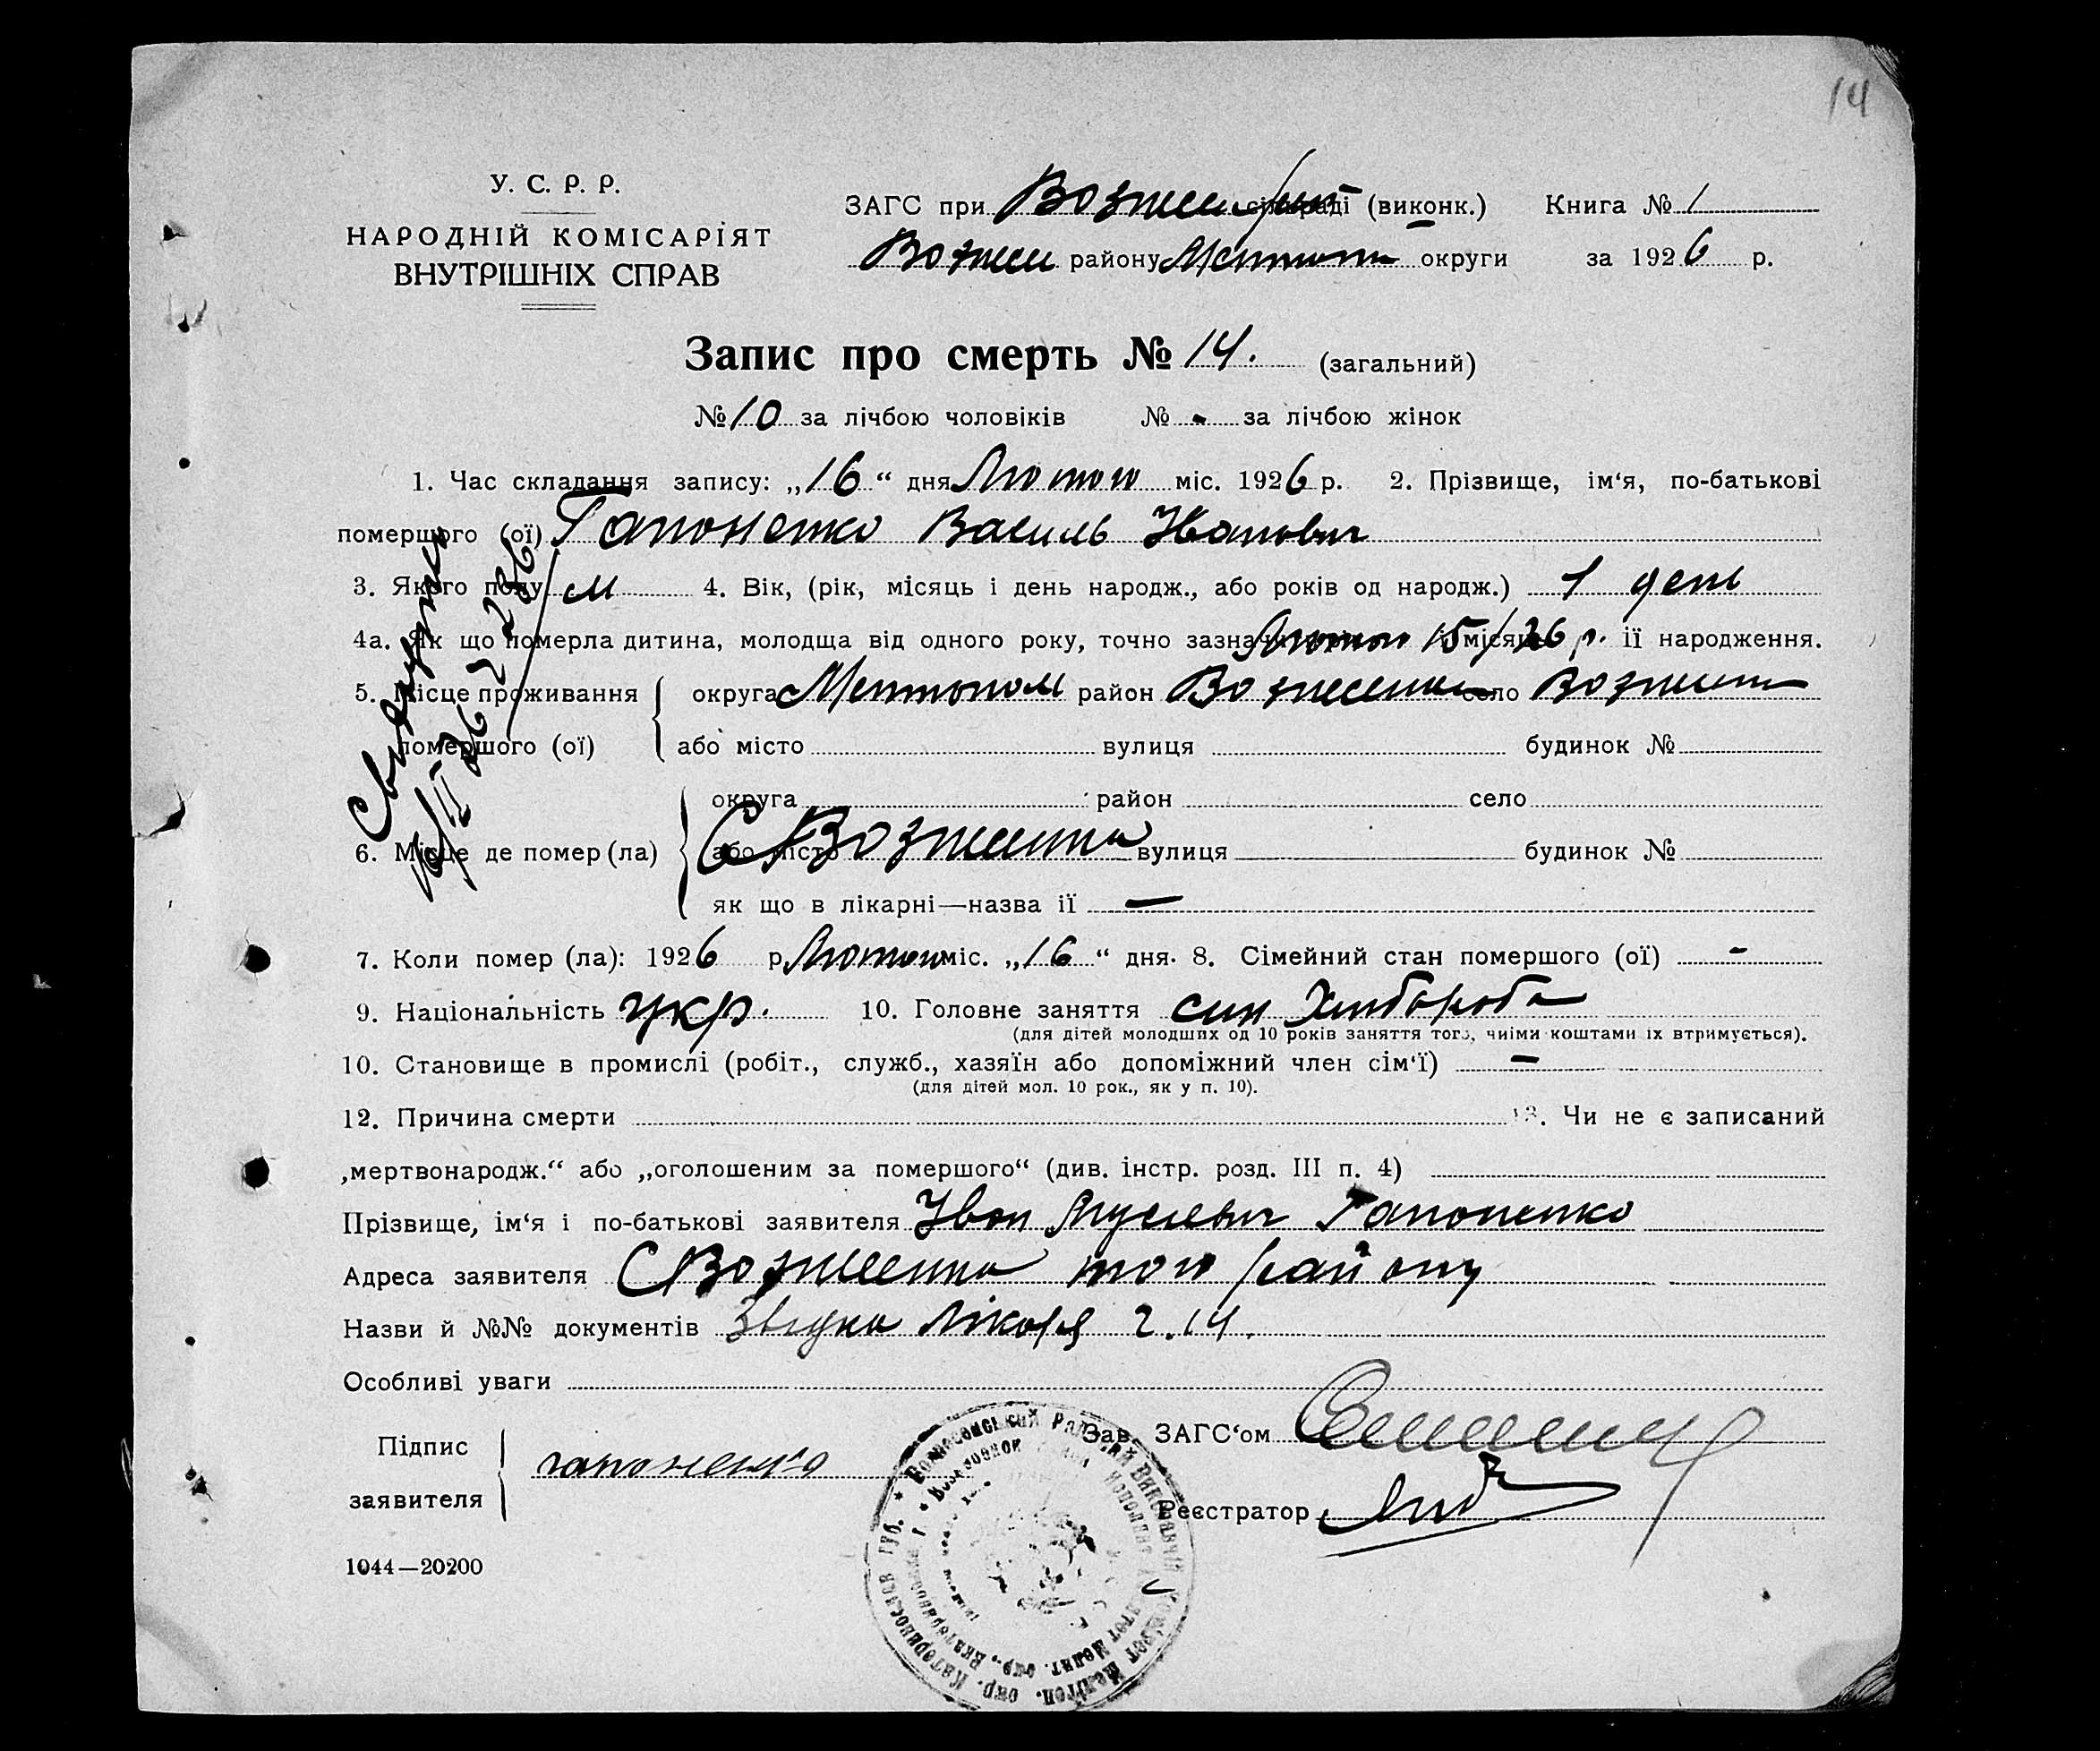 14
У. С. Р. Р.
НАРОДНІЙ КОМІСАРІЯТ
ВНУТРІШНІХ СПРАВ
ЗАГС при (виконк.) Книга № 1
району округи за 1926 р.
Запис про смерть № 14. (загальний)
№ 10 за лічбою чоловіків № - за лічбою жінок
1. Час складання запису: „16“ дня Лютого міс. 1926 р. 2. Прізвище, ім‘я, по-батькові
помершого (ої) Гапоненко Василь Іванович
3. Якого полу м 4. Вік, (рік, місяць і день народж., або років од народж.) 1 день
4а. Як що померла дитина, молодща від одного року, точно Лютого 15/26 р. її народження.
5. Місце проживання помершого (ої) округа район село
або місто вулиця будинок №
6. Місце де помер (ла) округа район село
або місто С Вознесенка вулиця будинок №
як що в лікарні—назва ії —
7. Коли помер (ла): 1926 р Лютого міс. „16“ дня. 8. Сімейний стан помершого (ої) -
9. Національність укр. 10. Головне заняття син Хлібороба
(для дітей молодших од 10 років заняття того, чиїми коштами їх втримується).
10. Становище в промислі (робіт., служб., хазяїн або допоміжний член сім‘ї) —
(для дітей мол. 10 рок., як у п. 10).
12. Причина смерти 13. Чи не є записаний
„мертвонародж.“ або „оголошеним за помершого“ (див. інстр. розд. III п. 4)
Прізвище, ім‘я і по-батькові заявителя Іван Гапоненко
Адреса заявителя С Вознесенка того району
Назви й №№ документів Лікаря 2.14.
Особливі уваги
Зав. ЗАГС‘ом
Підпис заявителя гапоненко
Реєстратор
1044—20200